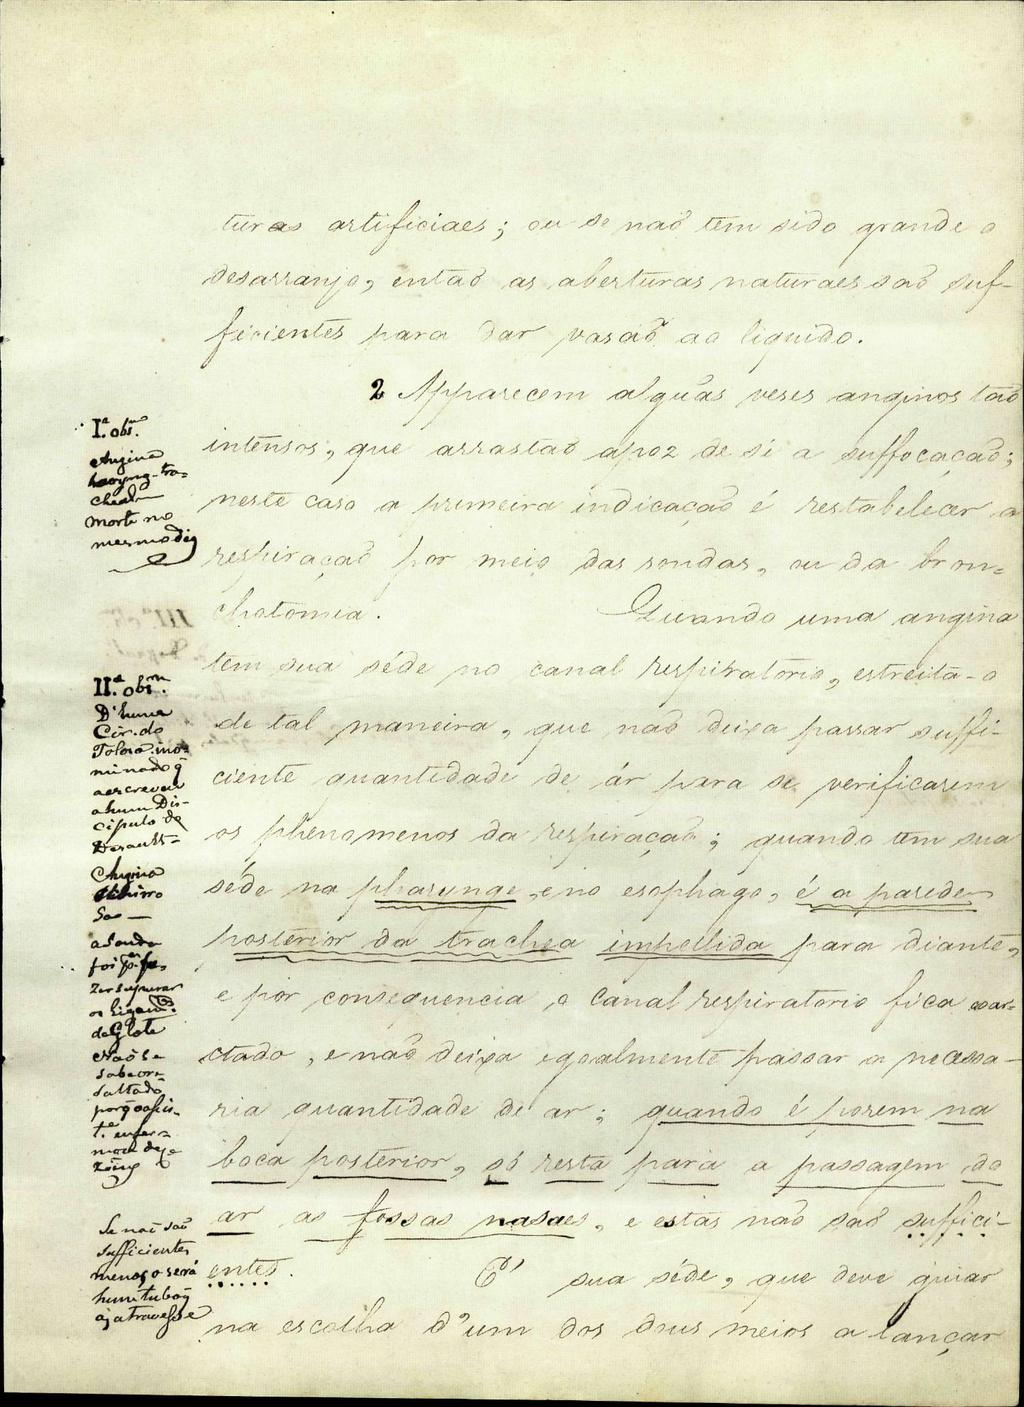 turas artificiaes; ou se naõ tem sido grande o
desarranjo, entaõ as aberturas naturaes saõ suf-
ficientes para dar vasaõ ao liquido.
2 Apparecem alguãs veses anginas taõ
intensos, que arrastaõ apoz de si a suffocaçaõ;
neste caso a primeira indicaçaõ é restabelecer a
respiraçaõ por meio das sondas, ou da bron=
chotomia. Quando uma angina
tem sua séde no canal respiratorio, estreita-o
de tal maneira, que naõ deixa passar suffi-
ciente quantidade de ár para se verificarem
os phenomenos da respiraçaõ; quando tem sua
séde na pharunge, e no esophago, é a parede
posterior da trachea impellida para diante,
e por consequencia o canal respiratorio fica coar-
ctado, e naõ deixa egoalmente passar a necessa-
ria quantidade de ar; quando é porem na
boca posterior, só resta para a passagem do
ar as fossas nasaes, e estas naõ saõ suffici-
entes. É sua séde, que deve guiar
na escolha d'um dos dous meios a lançar
I.ª obs.
Angina
tra=
cheal
morte no
mesmo dia
II.ª obs.m
D'huma
Cir. do
Tolosa ino=
minado q̃
a escreveu
a hum Dis-
cipulo de
Desault-
Angina
a sonda
foi
zer supurar
os Ligam.
da Glote
Naõ se
sabe o re-
sultado
Se naõ saõ
sufficientes
menos o será
hum tubo q̃
as atravesse